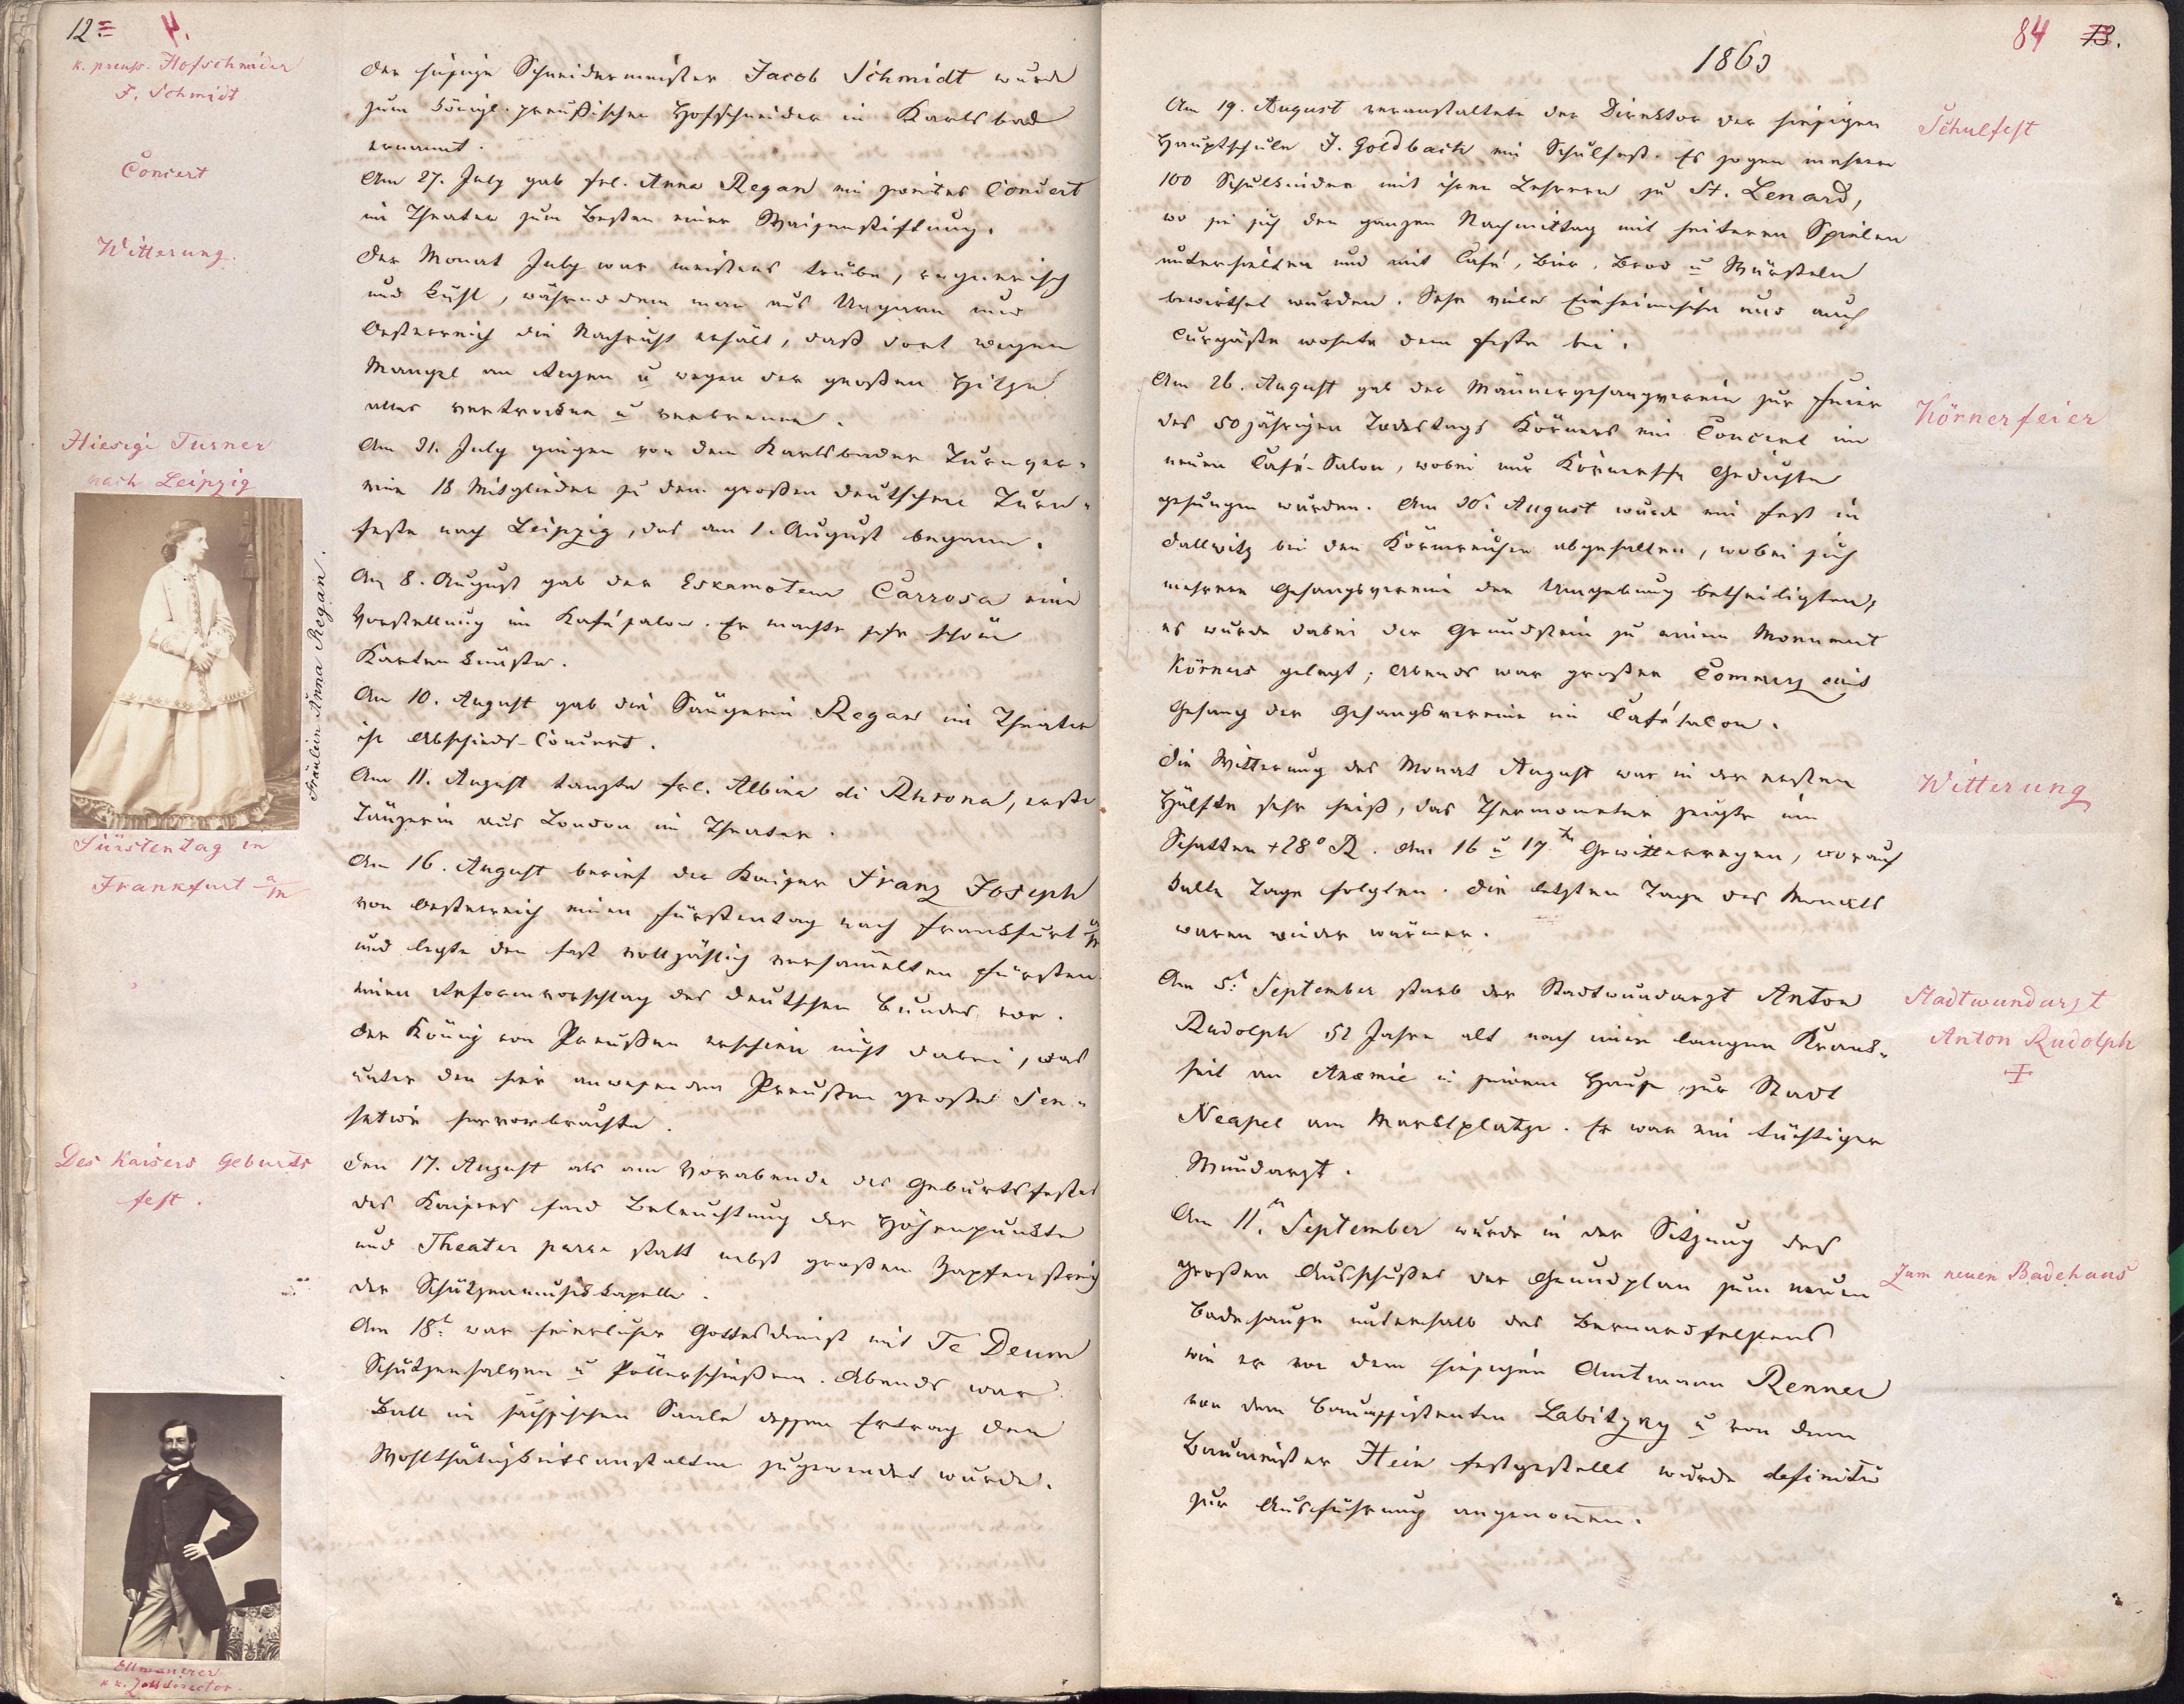 12. 4.
k. preuß. Hofschneider
J. Schmidt
Der hiesige Schneidermeister Jacob Schmidt wurde
zum königl. preußischen Hofschneider in Karlsbad
ernannt.
Concert
Am 27. July gab Frl. Anna Regan ein zweites Concert
im Theater zum Besten einer Waisenstiftung.
Witterung.
Der Monat July war meistens trübe, regnerisch
und kühl, während dem man aus Ungarn und
Oesterreich die Nachricht erhält, daß dort wegen
Mangel an Regen u wegen der großen Hitze
alles vertrocken u verbrenne.
Hiesige Turner
nach Leipzig
Am 31. July gingen von dem Karlsbader Turnver-
ein 18 Mitglieder zu dem großen deutschen Turn-
feste nach Leipzig, das am 1. August begann.
Fräulein Anna Regan.
Am 8. August gab der Eskamoteur Carrosa eine
Vorstellung im Kafésalon. Er machte sehr schöne
Kartenkünste.
Am 10. August gab die Sängerin Regan im Theater
ihr Abschieds-Concert.
Am 11. August tanzte Frl. Albina di Rhrona, erste
Tänzerin aus London im Theater.
Fürstentag in
Frankfurt a/m
Am 16. August berief der Kaiser Franz Joseph
von Oesterreich einen Fürstentag nach Frankfurt a/m
und legte den fast vollzählig versammelten Fürsten
einen Reformvorschlag des deutschen Bundes vor.
Der König von Preußen erschien nicht dabei, was
unter den hier anwesenden Preußen große Sen-
sation hervorbrachte.
Des Kaisers Geburts
fest.
Den 17. August als am Vorabende des Geburtsfestes
des Kaisers fand Beleuchtung der Höhenpunkte
und Theater paree statt nebst großem Zapfenstreich
der Schützenmusikkapelle.
Am 18t. war feierlicher Gottesdienst mit Te Deum
Schützensalven u Pöllerschießen. Abends war
Ball im sächsischen Saale dessen Ertrag den
Wohlthätigkeitsanstalten zugewendet wurde.
Ellmanerer
k k. Zolldirector.
1863
84 13.
Am 19. August veranstaltete der Direktor der hiesigen
Hauptschule J. Goldbach ein Schulfest. Es zogen mehrere
100 Schulkinder mit ihren Lehrern zu St. Lenard,
wo sie sich den ganzen Nachmittag mit heiteren Spielen
unterhielten und mit Café, Bier, Brod u Würsteln
bewirthet wurden. Sehr viele Einheimische und auch
Curgäste wohnte dem Feste bei.
Schulfest
Am 26. August gab der Männergesangverein zur Feier
des 50 jährigen Todestags Körners ein Concert im
neuen Café-Salon, wobei nur Körnersche Gedichte
gesungen wurden. Am 30. August wurde ein Fest in
Dallwitz bei den Körnereichen abgehalten, wobei sich
mehrere Gesangsvereine der Umgebung betheiligten,
es wurde dabei der Grundstein zu einem Monument
Körners gelegt; Abends war großer Commerz mit
Gesang der Gesangsvereine im Cafésalon.
Körnerfeier
Die Witterung des Monat August war in der ersten
Hälfte sehr heiß, das Thermometer zeigte im
Schatten +28° R. Am 16 u 17ten Gewitterregen, worauf
kalte Tage folgten. Die letzten Tage des Monats
waren wieder wärmer.
Witterung
Am 5t. September starb der Stadtwundarzt Anton
Rudolph 52 Jahre alt nach einer langen Krank-
heit an Anaemie in seinem Hause zur Stadt
Neapel am Marktplatze. Er war ein tüchtiger
Wundarzt.
Stadtwundarzt
Anton Rudolph
†
Am 11.n September wurde in der Sitzung des
großen Ausschußes der Grundplan zum neuen
Badehause unterhalb des Bernardsfelsens
wie er von dem hiesigen Amtmann Renner
von dem Bauassistenten Labitzky u von dem
Baumeister Hein festgestellt wurde definitiv
zur Ausführung angenommen.
Zum neuen Badehaus